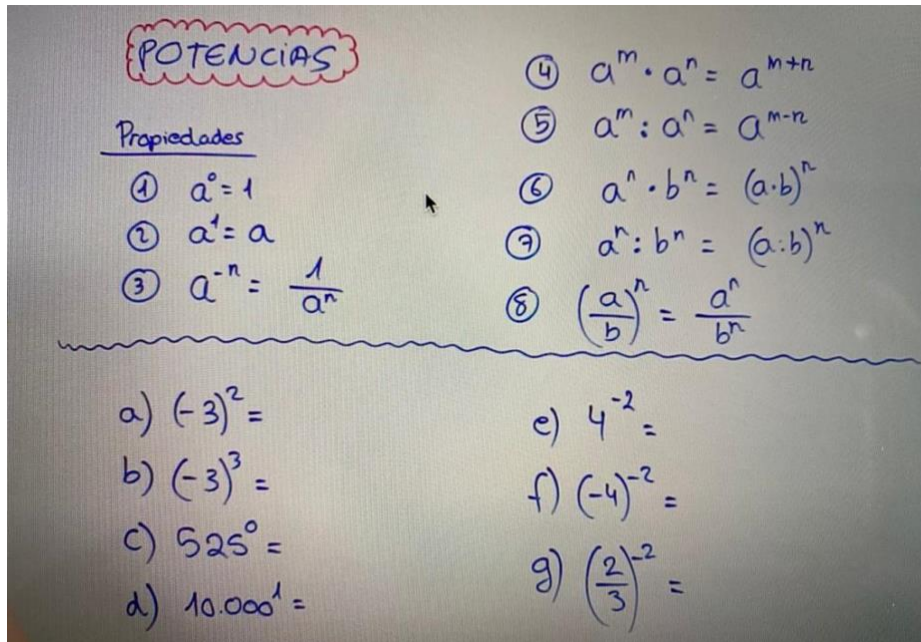 POTENCIAS
Propiedades
① a⁰ = 1
② a¹ = a
③ a⁻ⁿ = 1/aⁿ
④ aᵐ · aⁿ = aᵐ⁺ⁿ
⑤ aᵐ : aⁿ = aᵐ⁻ⁿ
⑥ aⁿ · bⁿ = (a·b)ⁿ
⑦ aⁿ : bⁿ = (a:b)ⁿ
⑧ (a/b)ⁿ = aⁿ/bⁿ
a) (-3)² =
b) (-3)³ =
c) 525⁰ =
d) 10.000¹ =
e) 4⁻² =
f) (-4)⁻² =
g) (2/3)⁻² =